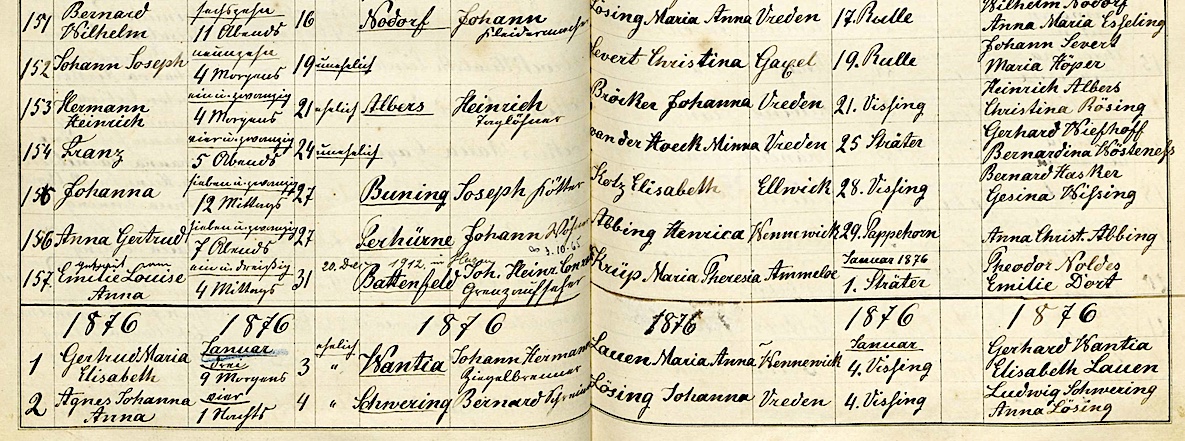 151 Bernard sechszehn 16 Nodorf Johann Lösing Maria Anna Vreden 17. Rulle Wilhelm Nodorf
Wilhelm 11 Abends Anna Maria Eßeling
152 Johann Joseph neunzehn 19 unehelich Severt Christina Gaxel 19. Rulle Johann Severt
4 Morgens Maria Höper
153 Hermann ein u. zwanzig 21 ehelich Albers Heinrich Bröcker Johanna Vreden 21. Vissing Heinrich Albers
Heinrich 4 Morgens Taglöhner Christina Rösing
154 Franz vier u. zwanzig 24 unehelich van der Hoeck Minna Vreden 25 Sträter Gerhard Wiefhoff
5 Abends Bernardina
155 Johanna sieben u. zwanzig 27 Buning Joseph Kötter Kotz Elisabeth Ellwick 28. Vissing Bernard Hasker
12 Mittags Gesina Wissing
156 Anna Gertrud sieben u. zwanzig 27 Terhürne Johann Abbing Henrica Wennewick 29. Pappehorn
7 Abends Anna Christ. Abbing
∞ 3.10.65
20. Dez. 1912. in
157 Emilie Louise ein u. dreißig 31 Battenfeld Joh. Heinr. Krüp Maria Theresia Ammeloe Januar 1876 Theodor Noldes
Anna 4 Mittags Grenzaufseher 1. Sträter Emilie Dort
1876 1876 1876 1876 1876 1876
1 Gertrud Maria Januar 3 ehelich Wantia Johann Hermann Lauen Maria Anna Wennewick Januar Gerhard Wantia
Elisabeth drei " Ziegelbrenner 4. Vissing Elisabeth Lauen
9 Morgens
2 Agnes Johanna vier 4 " Schwering Bernard Lösing Johanna Vreden 4. Vissing Ludwig Schwering
Anna 1 Nachts Anna Lösing